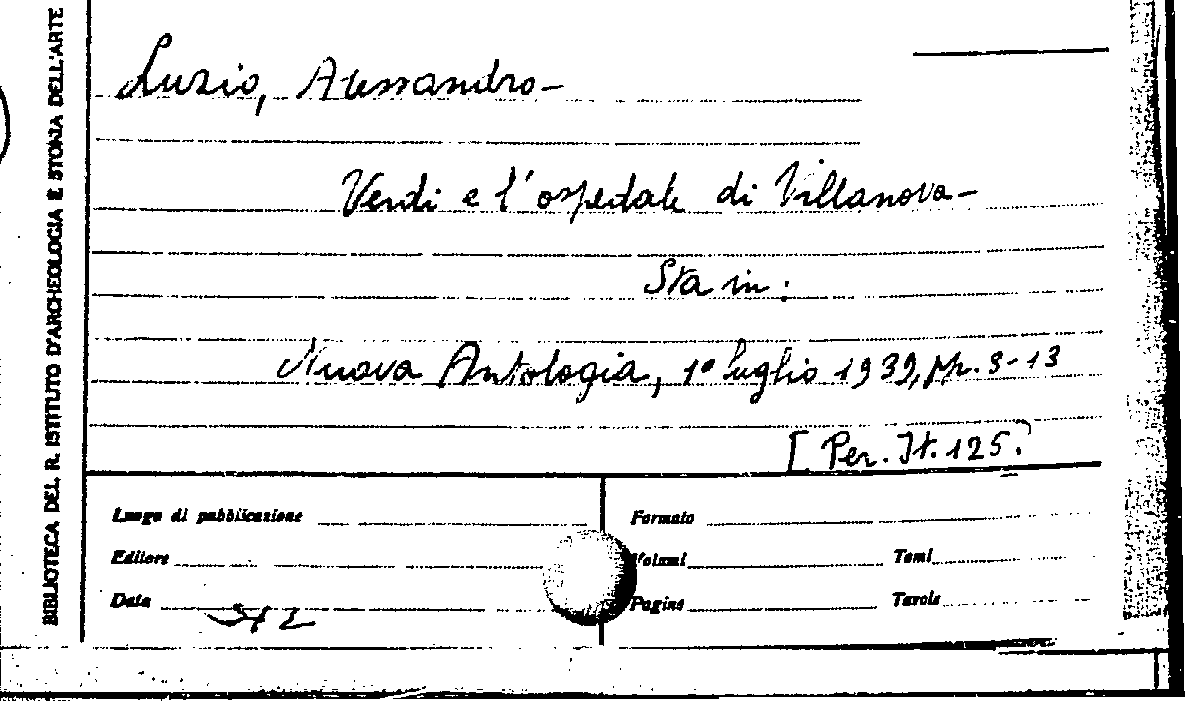 BIBLIOTECA DEL R. ISTITUTO D'ARCHEOLOGIA E STORIA DELL'ARTE
Luzio, Alessandro-
Verdi e l'ospedale di Villanova-
Sta in:
Nuova Antologia, 1° luglio 1939, pp. 3-13
[Per. It. 125.]
Luogo di pubblicazione
Formato
Editore
Volumi
Tomi
Data
Pagine
Tavole